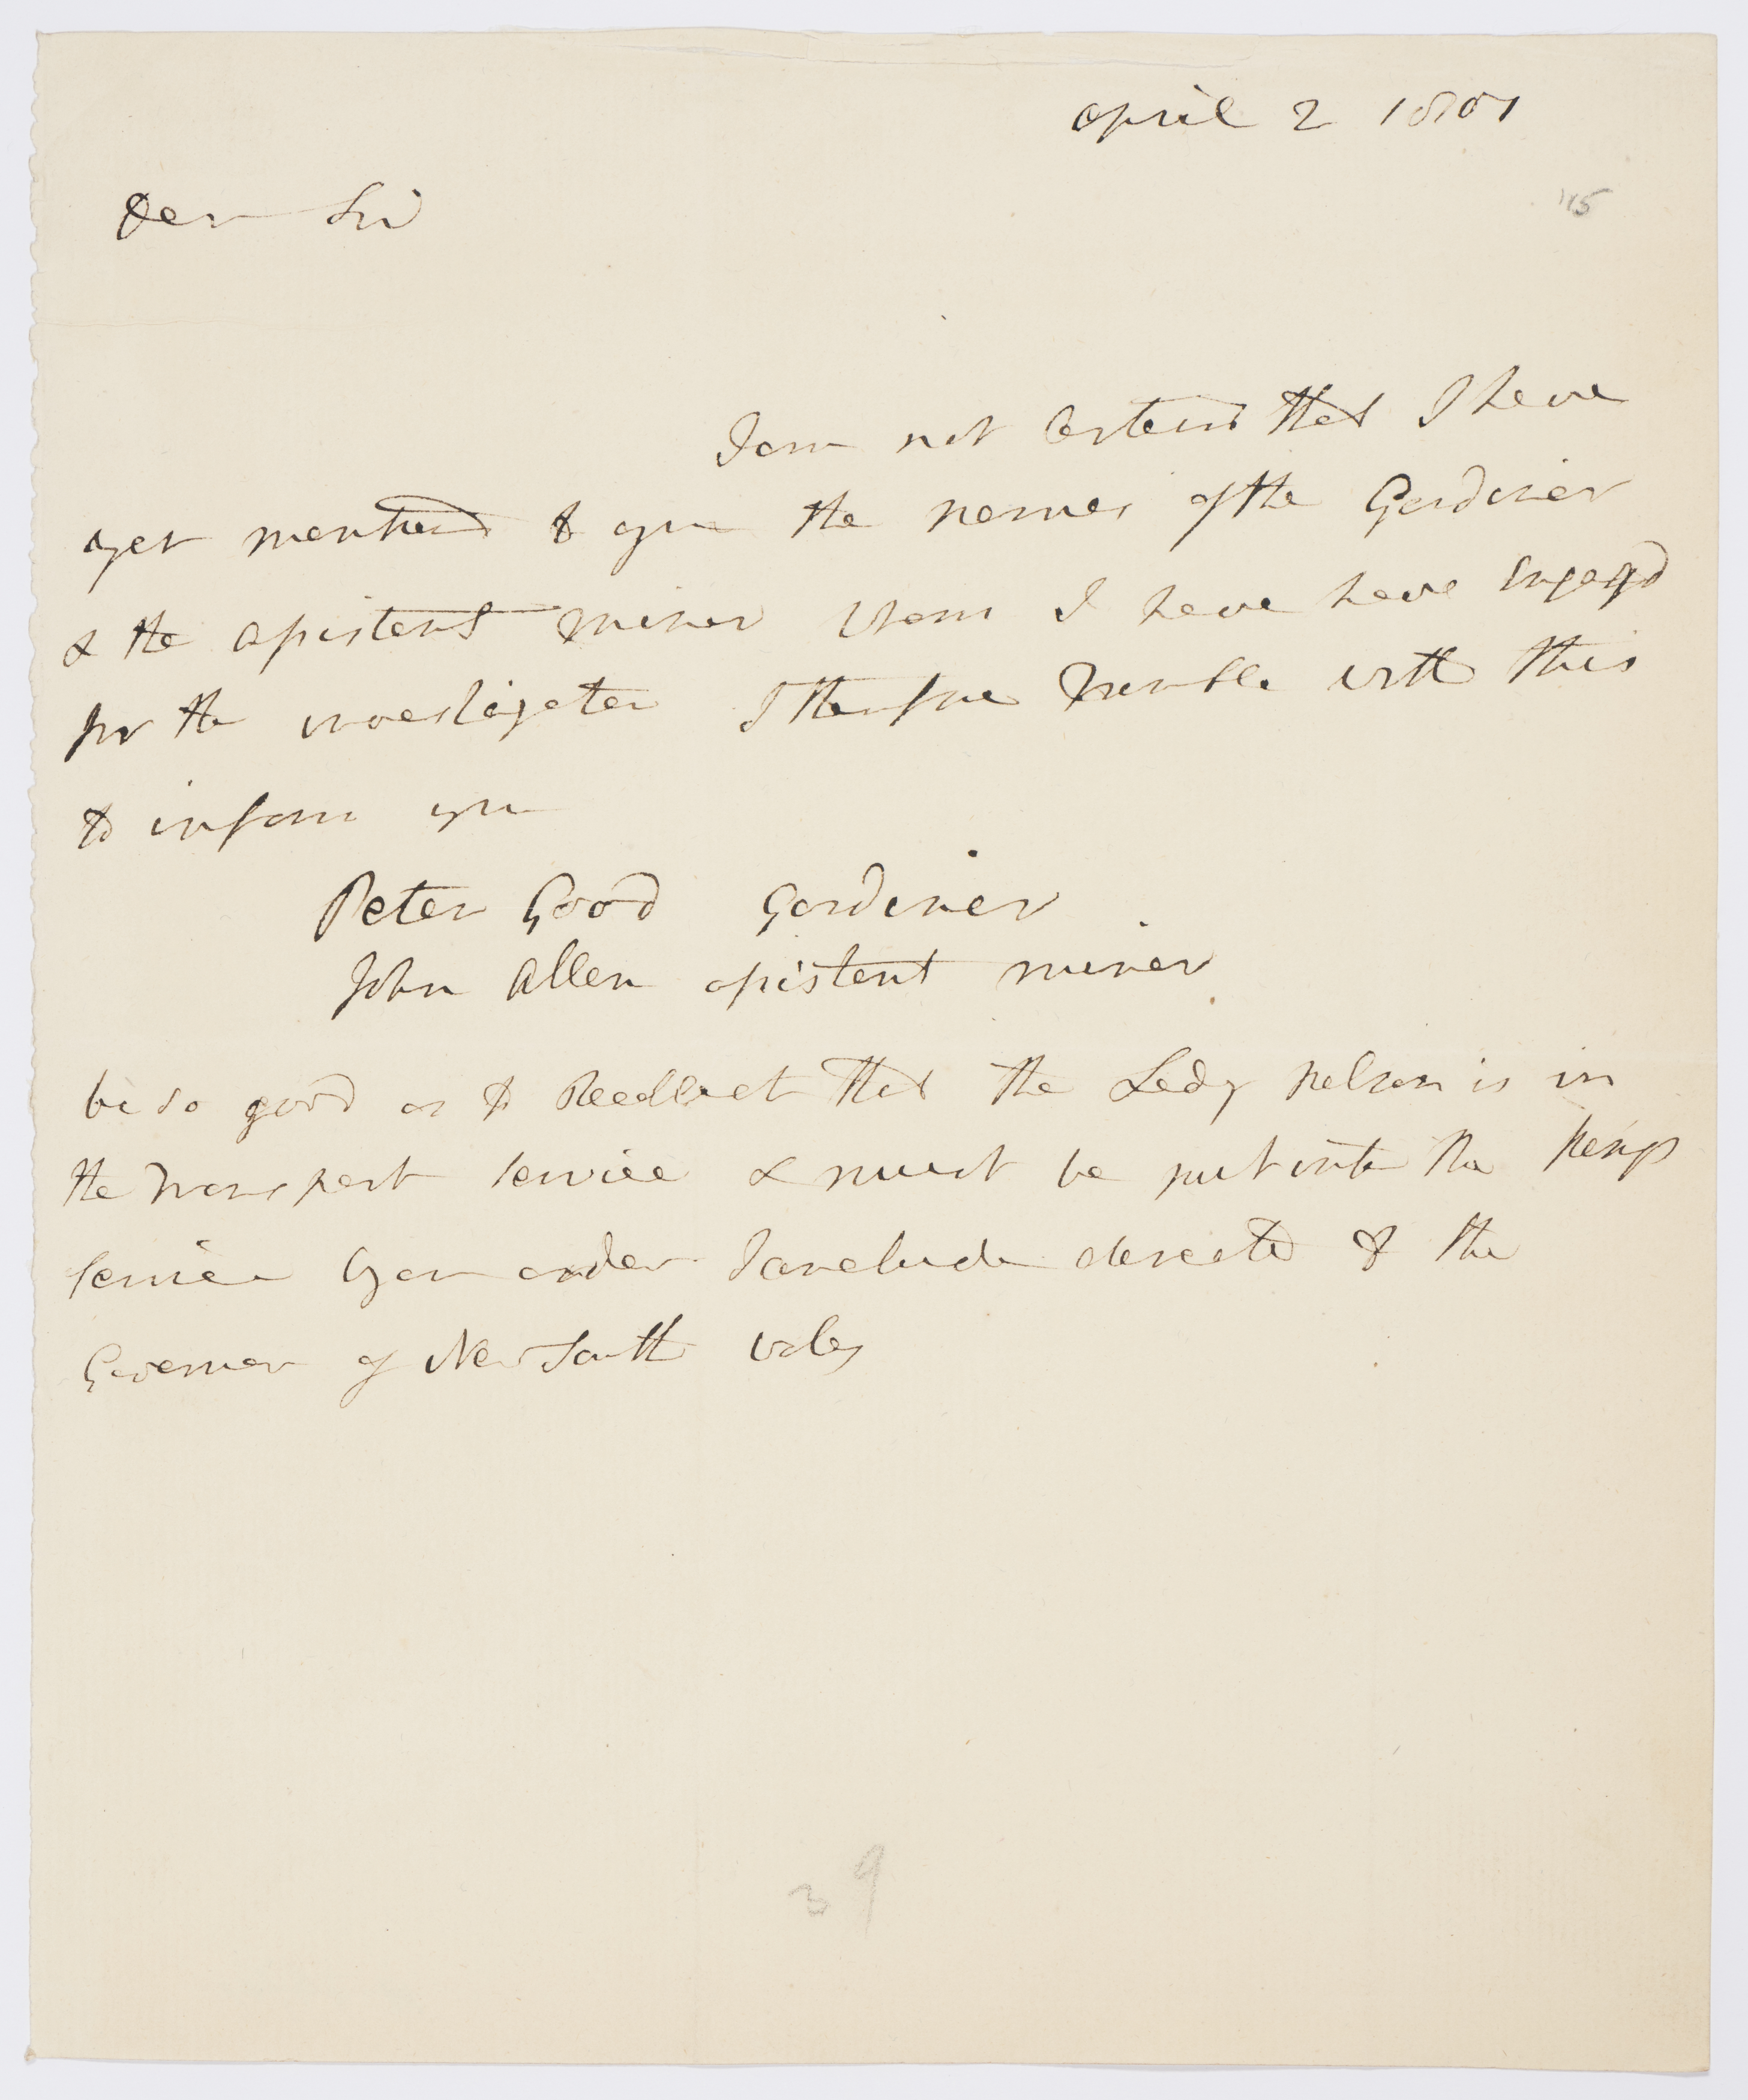 April 2 1801
115
Dear Sir
I am not Certain that I have
yet mentiond to you the names of the Gardiner
& the assistant miner whom I have have Engagd
for the investigator I therefore Trouble with this
to inform you
Peter Good Gardiner
John Allen assistant miner
be so good as to Recollect that the Lady Nelson is in
the Transport service & must be put into the Kings
service by an order I conclude directd to the
Governor of New South wales
39